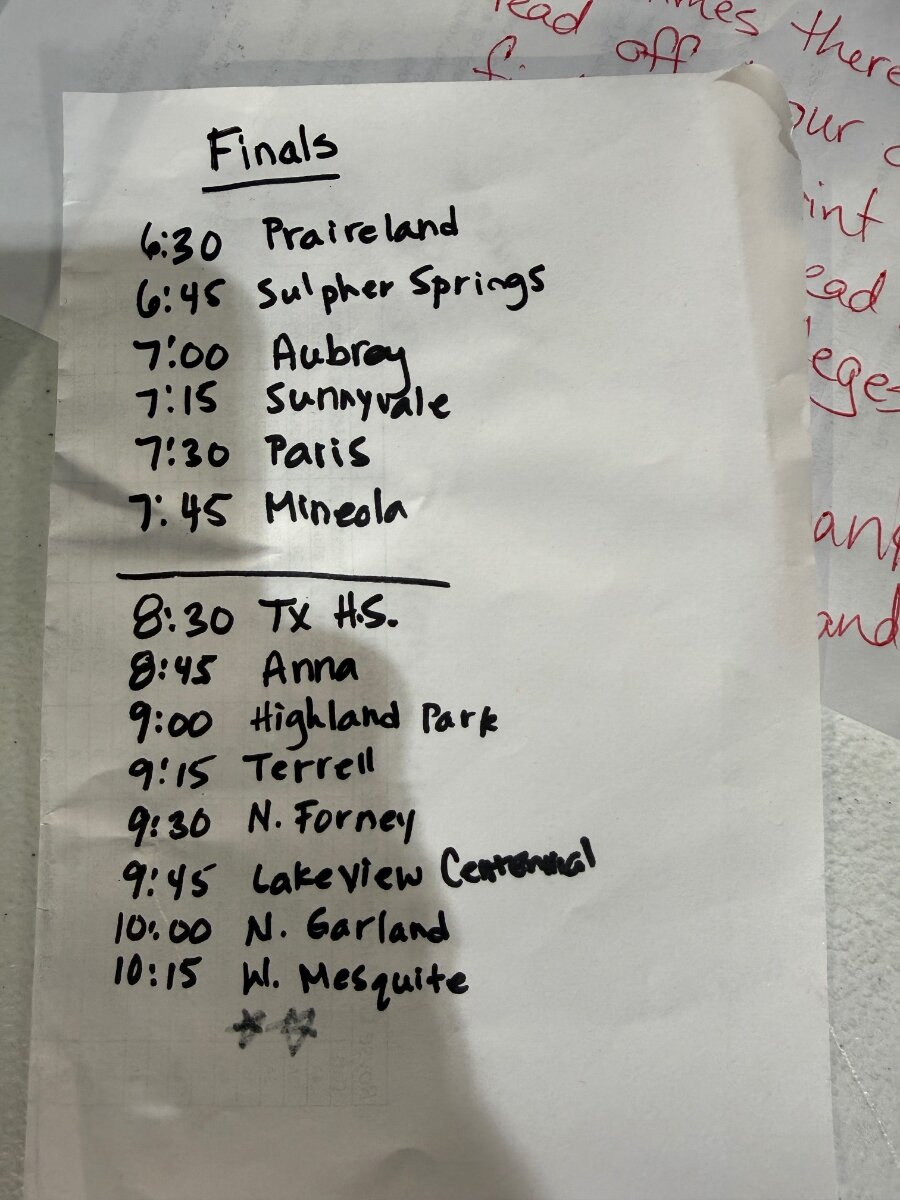 lead
there
off
our
Finals
6:30 Praireland
int
6:45 Sulpher Springs
ead
7:00 Aubrey
eges
7:15 Sunnyvale
7:30 Paris
7:45 Mineola
8:30 TX H.S.
and
8:45 Anna
9:00 Highland Park
9:15 Terrell
9:30 N. Forney
9:45 Lakeview Centennial
10:00 N. Garland
10:15 W. Mesquite